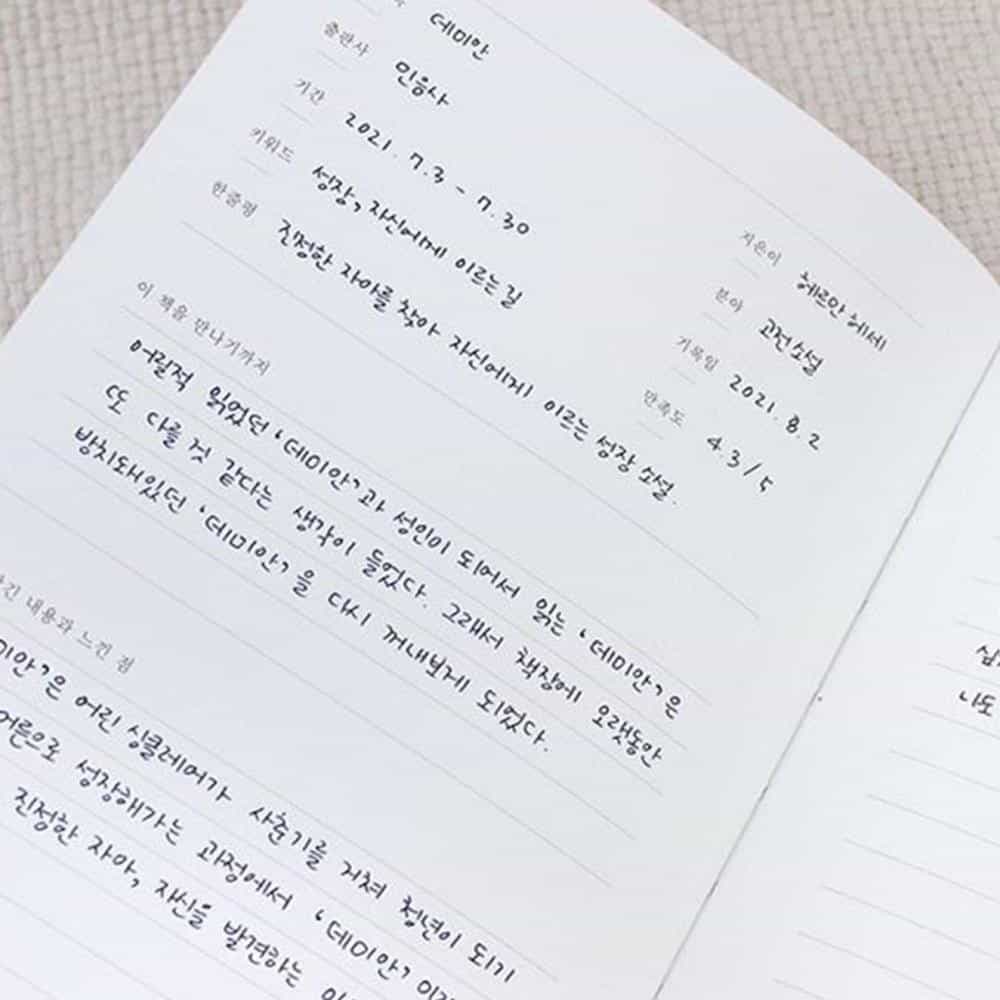 데미안
출판사 민음사
기간 2021. 7. 3 - 7. 30
키워드 성장, 자신에게 이르는 길
한줄평 진정한 자아를 찾아 자신에게 이르는 성장 소설.
지은이 헤르만 헤세
분야 고전소설
기록일 2021. 8. 2
만족도 4.3 / 5
이 책을 만나기까지
어릴적 읽었던 '데미안'과 성인이 되어서 읽는 '데미안'은
또 다를 것 같다는 생각이 들었다. 그래서 책장에 오랫동안
방치돼있던 '데미안'을 다시 꺼내보게 되었다.
내용과 느낀 점
'데미안'은 어린 싱클레어가 사춘기를 거쳐 청년이 되기
어른으로 성장해가는 과정에서 '데미안'
진정한 자아, 자신을 발견하는